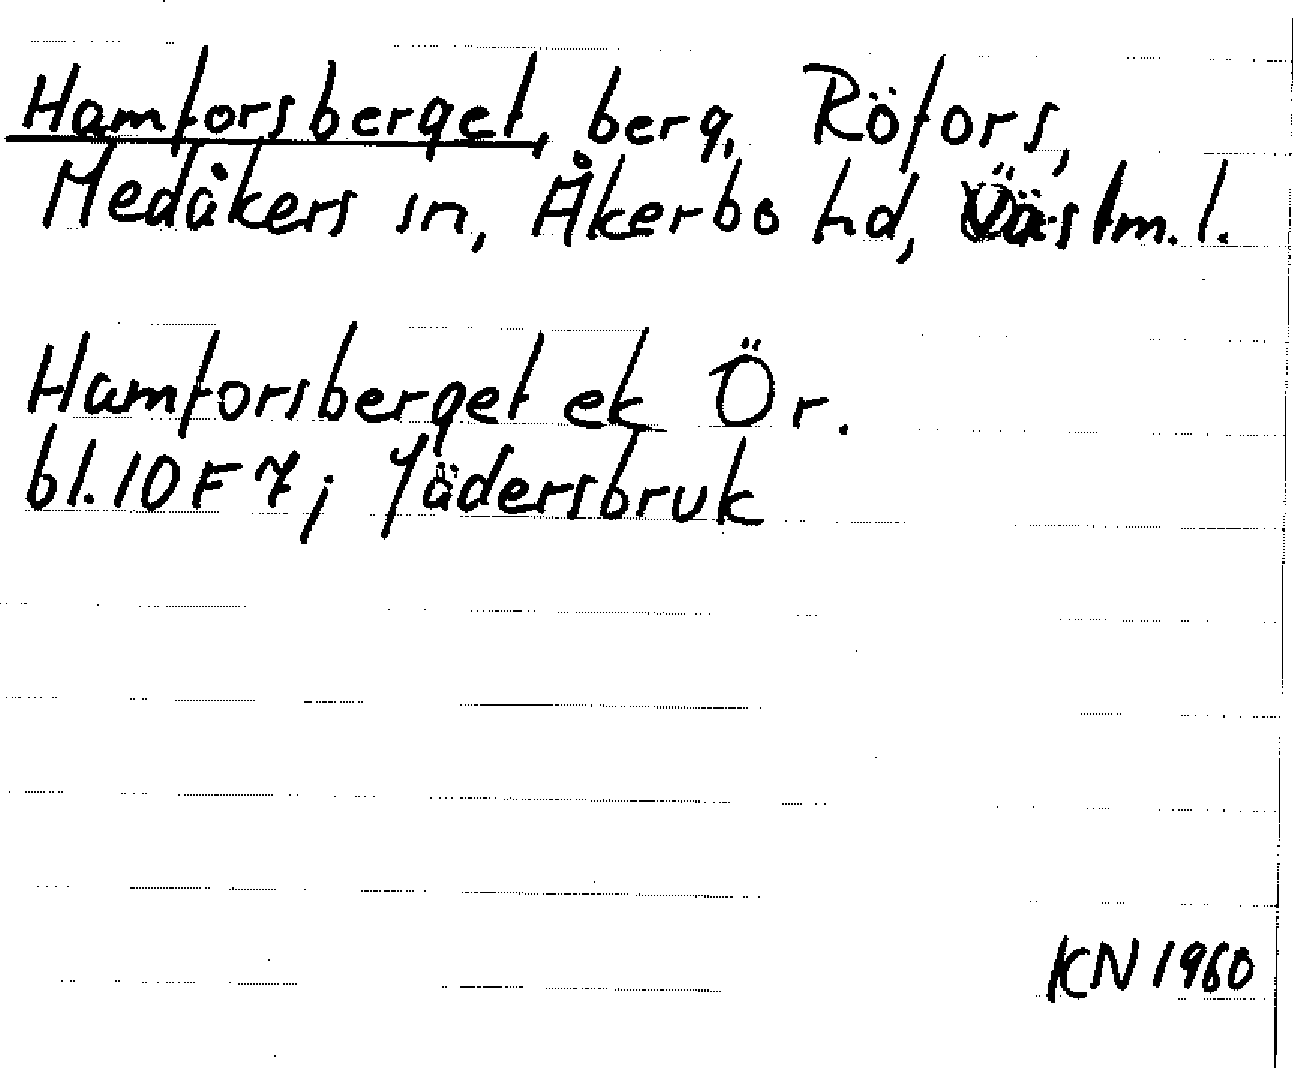 Hamforsberget, berg, Röfors,
Medåkers sn, Åkerbo hd, Västm. l.
Hamforsberget ek Ör.
bl. 10 F 7 j Jädersbruk
KN 1960